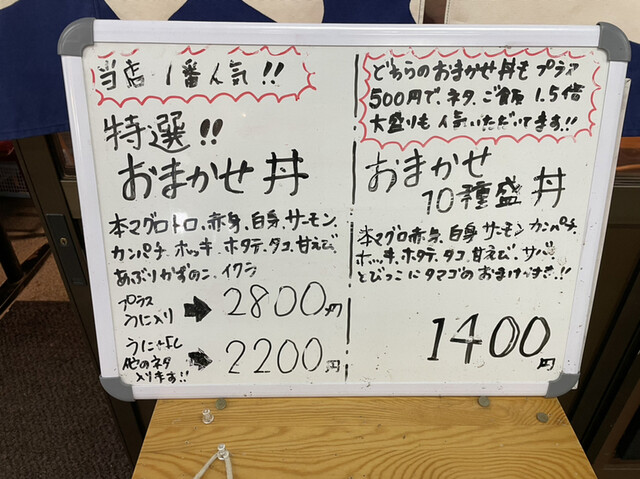 当店 1番人気!!
特選!!
おまかせ丼
本マグロトロ、赤身、白身、サーモン、
カンパチ、ホッキ、ホタテ、タコ、甘えび、
あぶりかずのこ、イクラ
プラス
うに入り → 2800円
うになし
他のネタ
入ります!! → 2200円
どちらのおまかせ丼もプラス
500円で、ネタ、ご飯 1.5倍
大盛りも人気いただいてます!!
おまかせ
10種盛丼
本マグロ赤身、白身、サーモン、カンパチ、
ホッキ、ホタテ、タコ、甘えび、サバ、
とびっこにタマゴのおまけつき!!
1400円